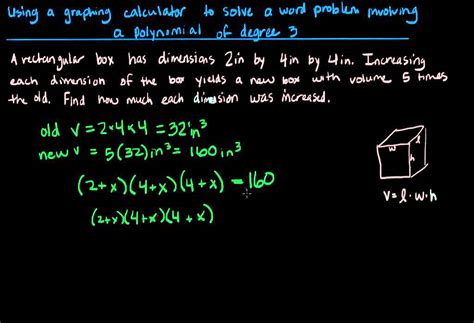 Using a graphing calculator to solve a word problem involving
a polynomial of degree 3
A rectangular box has dimensions 2in by 4in by 4in. Increasing
each dimension of the box yields a new box with volume 5 times
the old. Find how much each dimension was increased.
old V = 2*4*4 = 32in³
new V = 5(32)in³ = 160in³
(2+x)(4+x)(4+x) = 160
(2+x)(4+x)(4+x)
w l
h
V = l·w·h